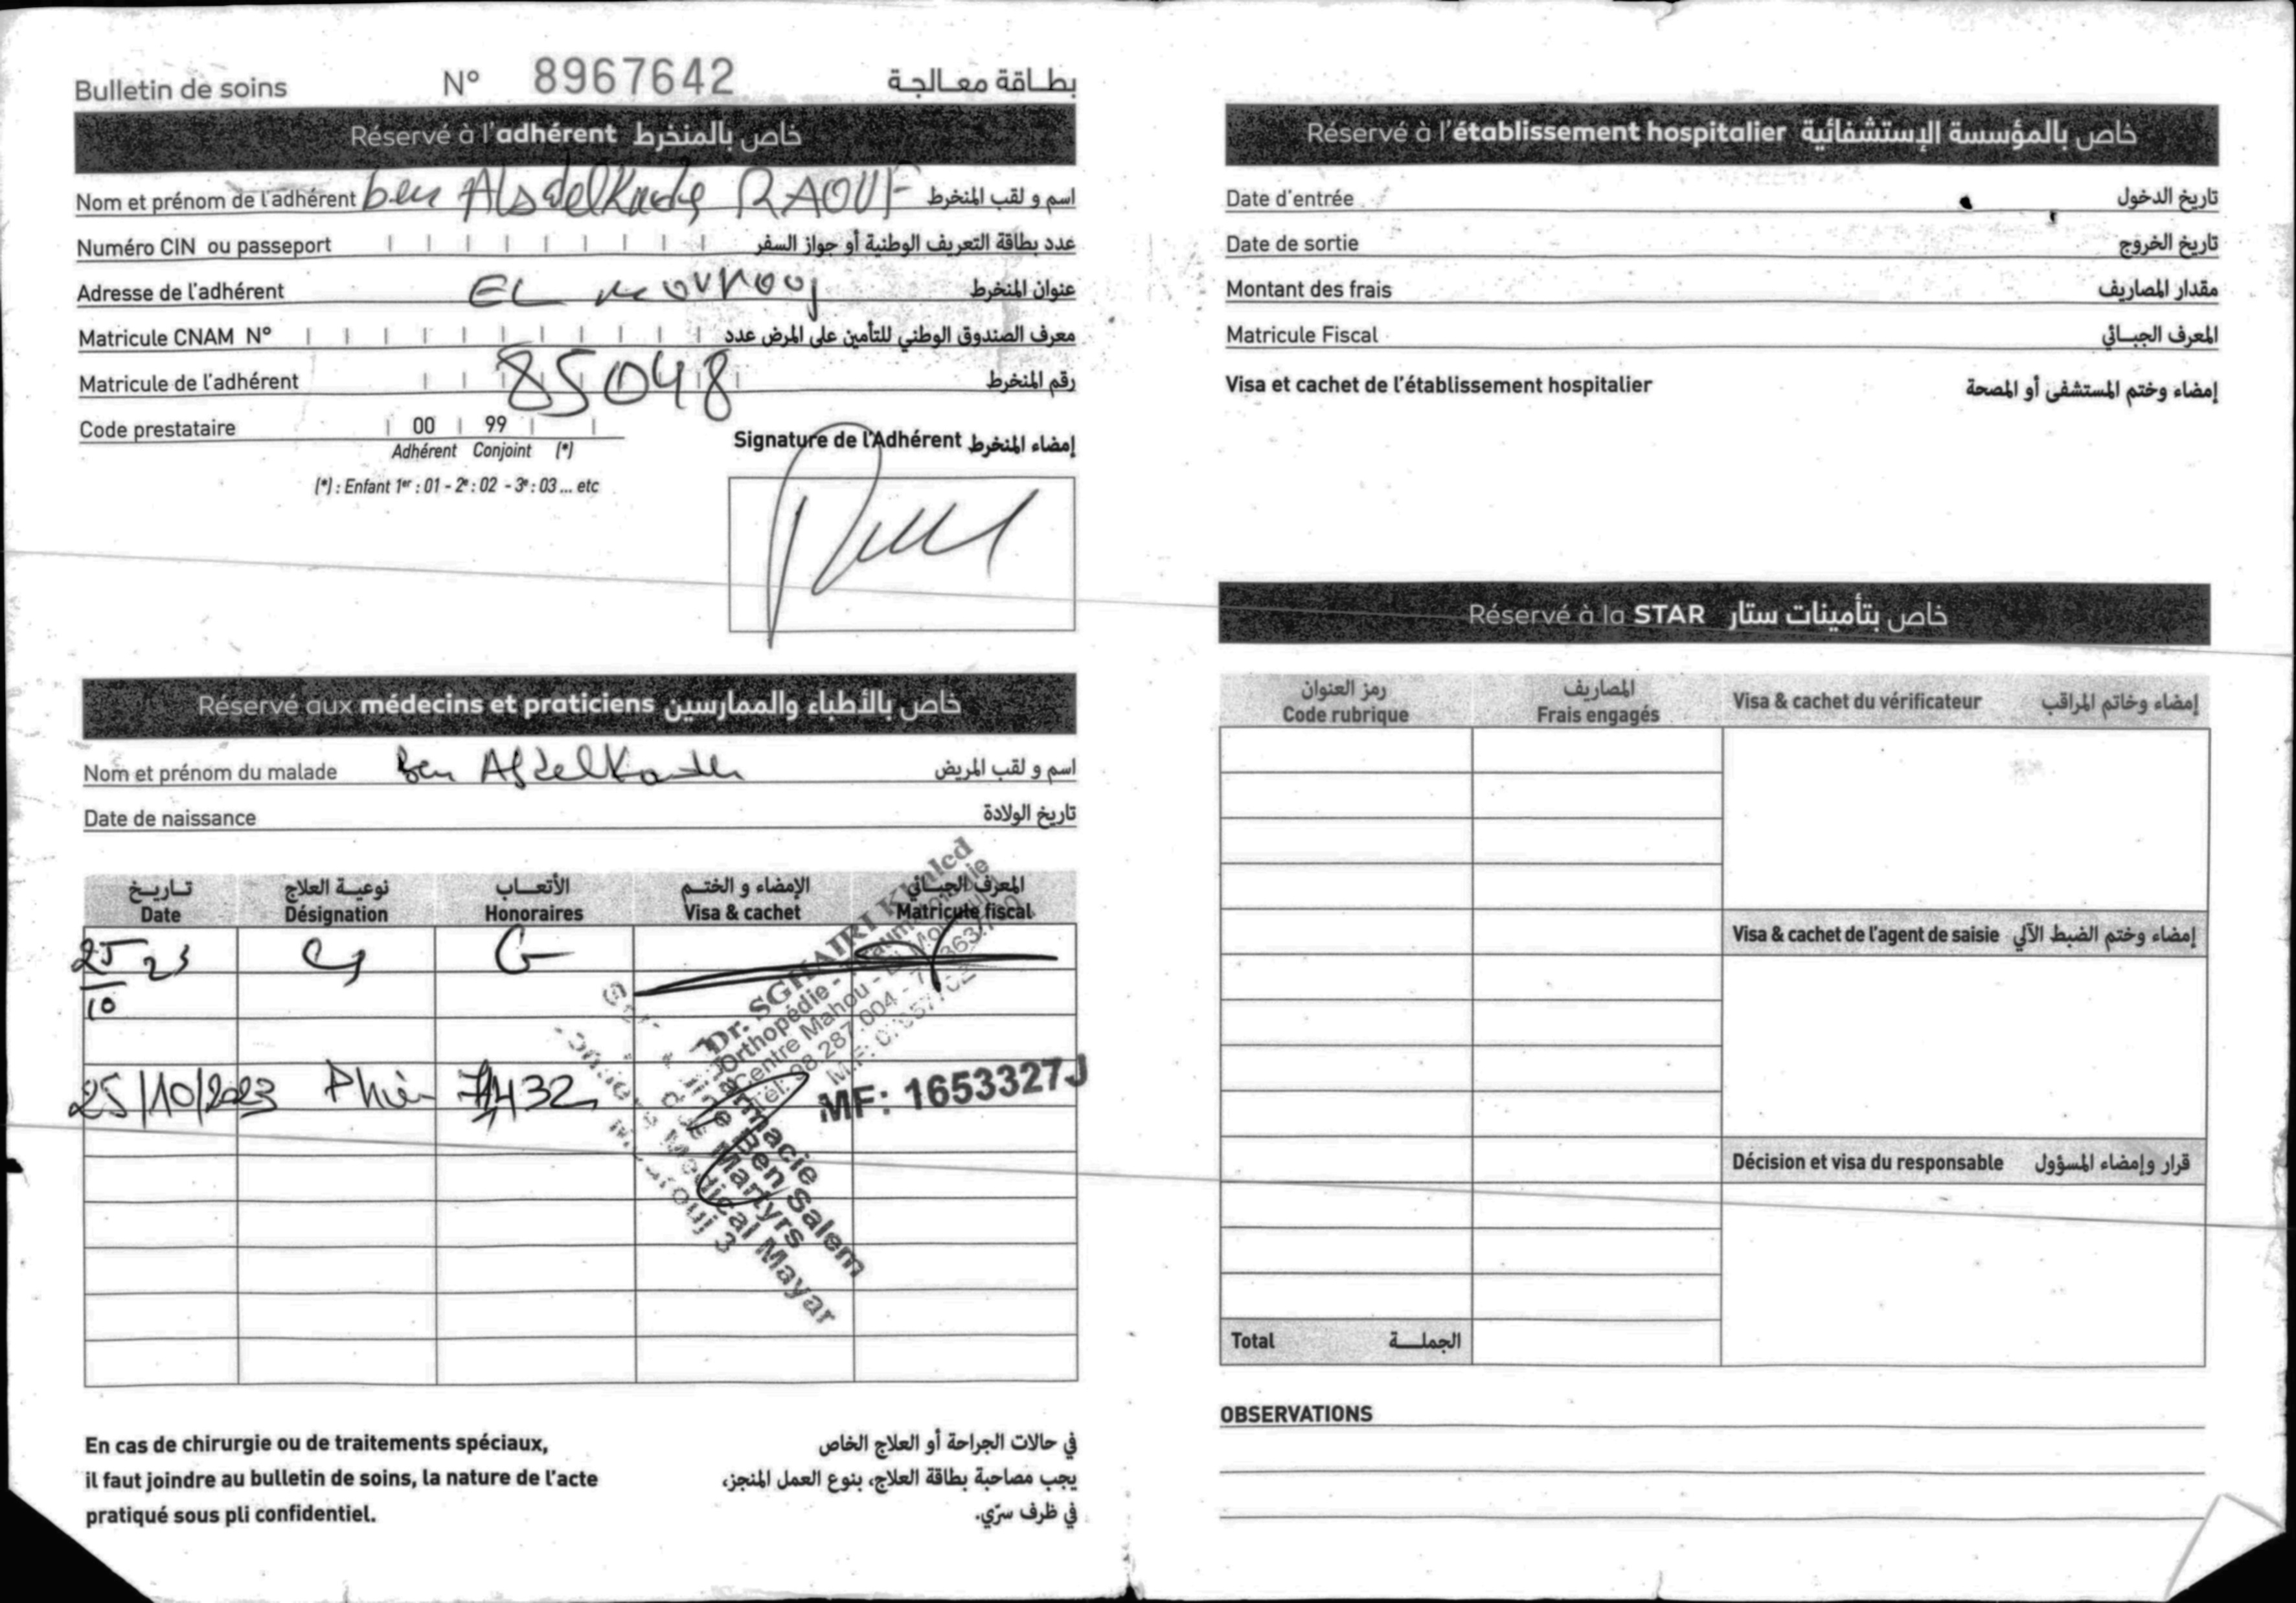 Bulletin de soins N° 8967642 بطاقة معالجة
Réservé à l'adhérent خاص بالمنخرط
Nom et prénom de l'adhérent ben Abdelkader RAOUF اسم و لقب المنخرط
Numéro CIN ou passeport عدد بطاقة التعريف الوطنية أو جواز السفر
Adresse de l'adhérent EL mourouj عنوان المنخرط
Matricule CNAM N° معرف الصندوق الوطني للتأمين على المرض عدد
Matricule de l'adhérent 85048 رقم المنخرط
Code prestataire 00 99
Adhérent Conjoint (*)
(*) : Enfant 1er : 01 - 2e : 02 - 3e : 03 ... etc
Signature de l'Adhérent إمضاء المنخرط
Réservé aux médecins et praticiens خاص بالأطباء والممارسين
Nom et prénom du malade Ben Abdelkader اسم و لقب المريض
Date de naissance تاريخ الولادة
تاريخ نوعية العلاج الأتعاب الإمضاء و الختم المعرف الجبائي
Date Désignation Honoraires Visa & cachet Matricule fiscal
25 23
10
Dr. SGHAIRI Khaled
Orthopédie -
Centre Mahou -
Tel: 98.287.004 -
25/10/2023
MF: 1653327J
Pharmacie
Ben Salem
Martyrs
Medical Mayar
Mourouj 3
En cas de chirurgie ou de traitements spéciaux,
il faut joindre au bulletin de soins, la nature de l'acte
pratiqué sous pli confidentiel.
في حالات الجراحة أو العلاج الخاص
يجب مصاحبة بطاقة العلاج، بنوع العمل المنجز،
في ظرف سرّي.
Réservé à l'établissement hospitalier خاص بالمؤسسة الإستشفائية
Date d'entrée تاريخ الدخول
Date de sortie تاريخ الخروج
Montant des frais مقدار المصاريف
Matricule Fiscal المعرف الجبائي
Visa et cachet de l'établissement hospitalier إمضاء وختم المستشفى أو المصحة
Réservé à la STAR خاص بتأمينات ستار
رمز العنوان المصاريف
Code rubrique Frais engagés Visa & cachet du vérificateur إمضاء وخاتم المراقب
Visa & cachet de l'agent de saisie إمضاء وختم الضبط الآلي
Décision et visa du responsable قرار وإمضاء المسؤول
Total الجملة
OBSERVATIONS